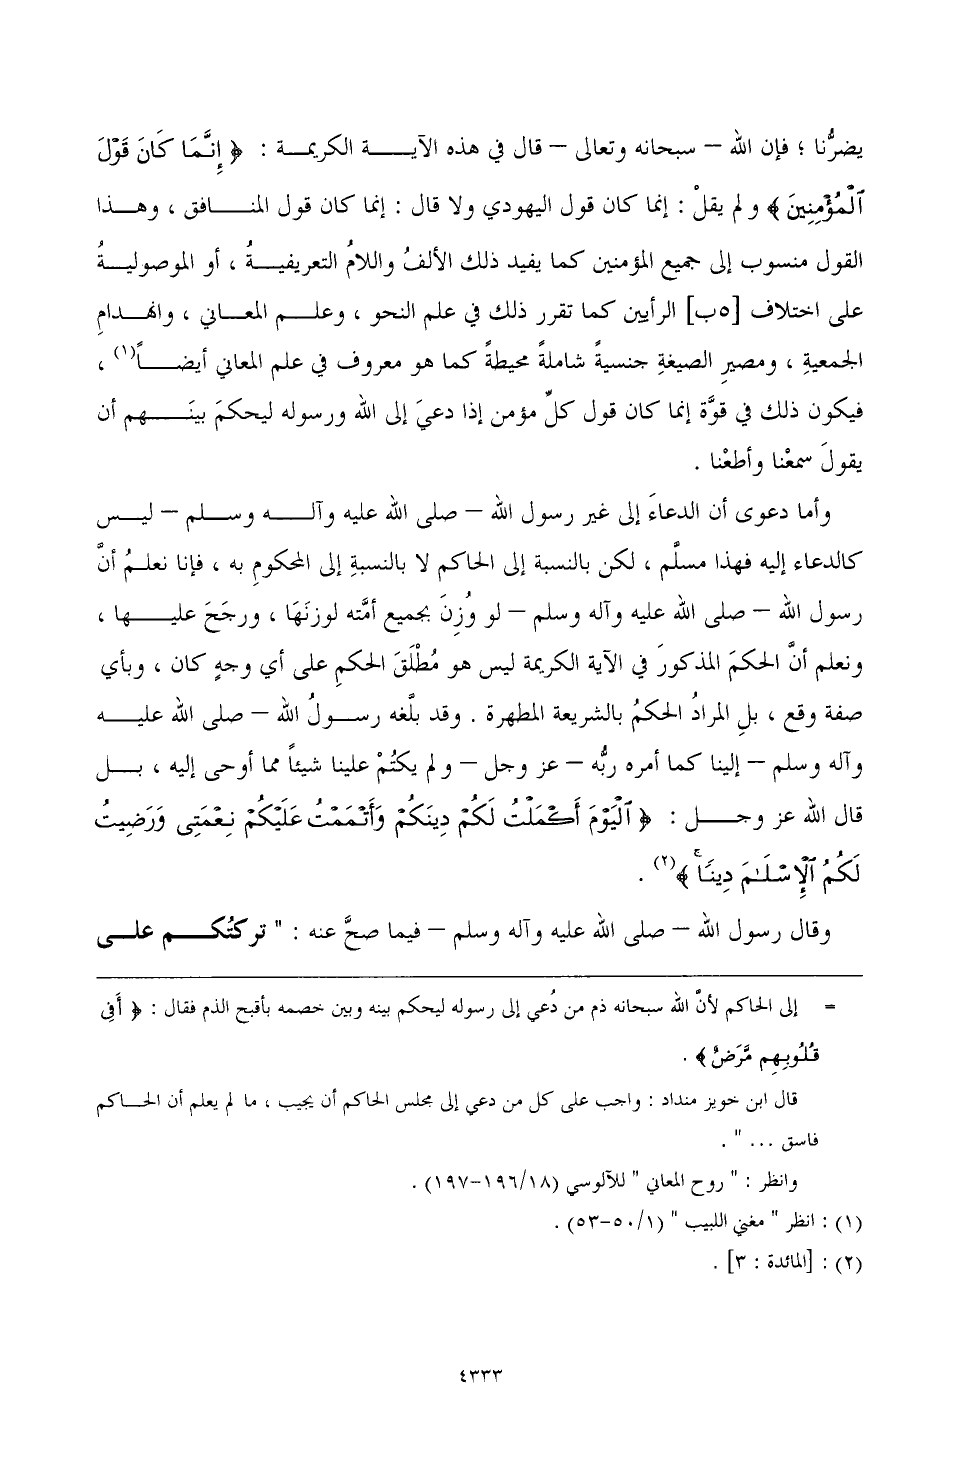 يضرُّنا ؛ فإن الله – سبحانه وتعالى – قال في هذه الآيـــة الكريمة : ﴿ إِنَّمَا كَانَ قَوْلَ
ٱلْمُؤْمِنِينَ ﴾ و لم يقلْ : إنما كان قول اليهودي ولا قال : إنما كان قول المنافق ، وهذا
القول منسوب إلى جميع المؤمنين كما يفيد ذلك الألفُ واللامُ التعريفيةُ ، أو الموصوليةُ
على اختلاف [٥ب] الرأيين كما تقرر ذلك في علم النحو ، وعلم المعاني ، وانهدامِ
الجمعيةِ ، ومصيرِ الصيغةِ جنسيةً شاملةً محيطةً كما هو معروف في علم المعاني أيضاً(١) ،
فيكون ذلك في قوَّة إنما كان قول كلِّ مؤمن إذا دعيَ إلى الله ورسوله ليحكمَ بينَهم أن
يقولَ سمعْنا وأطعْنا .
وأما دعوى أن الدعاءَ إلى غير رسول الله – صلى الله عليه وآله وسلم – ليس
كالدعاء إليه فهذا مسلَّم ، لكن بالنسبة إلى الحاكم لا بالنسبةِ إلى المحكومِ به ، فإنا نعلمُ أنَّ
رسول الله – صلى الله عليه وآله وسلم – لو وُزِنَ بجميع أمَّته لوزنَهَا ، ورجَحَ عليها ،
ونعلم أنَّ الحكمَ المذكورَ في الآية الكريمة ليس هو مُطْلَقَ الحكمِ على أي وجهٍ كان ، وبأي
صفة وقع ، بلِ المرادُ الحكمُ بالشريعة المطهرة . وقد بلَّغه رسولُ الله – صلى الله عليه
وآله وسلم – إلينا كما أمره ربُّه – عز وجل – و لم يكتُمْ علينا شيئاً مما أوحى إليه ، بل
قال الله عز وجل : ﴿ ٱلْيَوْمَ أَكْمَلْتُ لَكُمْ دِينَكُمْ وَأَتْمَمْتُ عَلَيْكُمْ نِعْمَتِى وَرَضِيتُ
لَكُمُ ٱلْإِسْلَـٰمَ دِينًا ۚ﴾(٢) .
وقال رسول الله – صلى الله عليه وآله وسلم – فيما صحَّ عنه : " تركتُكم على
= إلى الحاكم لأنَّ الله سبحانه ذم من دُعي إلى رسوله ليحكم بينه وبين خصمه بأقبح الذم فقال : ﴿ أَفِى
قُلُوبِهِم مَّرَضٌ ﴾ .
قال ابن خويز منداد : واجب على كل من دعي إلى مجلس الحاكم أن يجيب ، ما لم يعلم أن الحاكم
فاسق ... " .
وانظر : " روح المعاني " للآلوسي (١٨/١٩٦-١٩٧) .
(١) : انظر " مغني اللبيب " (١/٥٠-٥٣) .
(٢) : [المائدة : ٣] .
٤٣٣٣